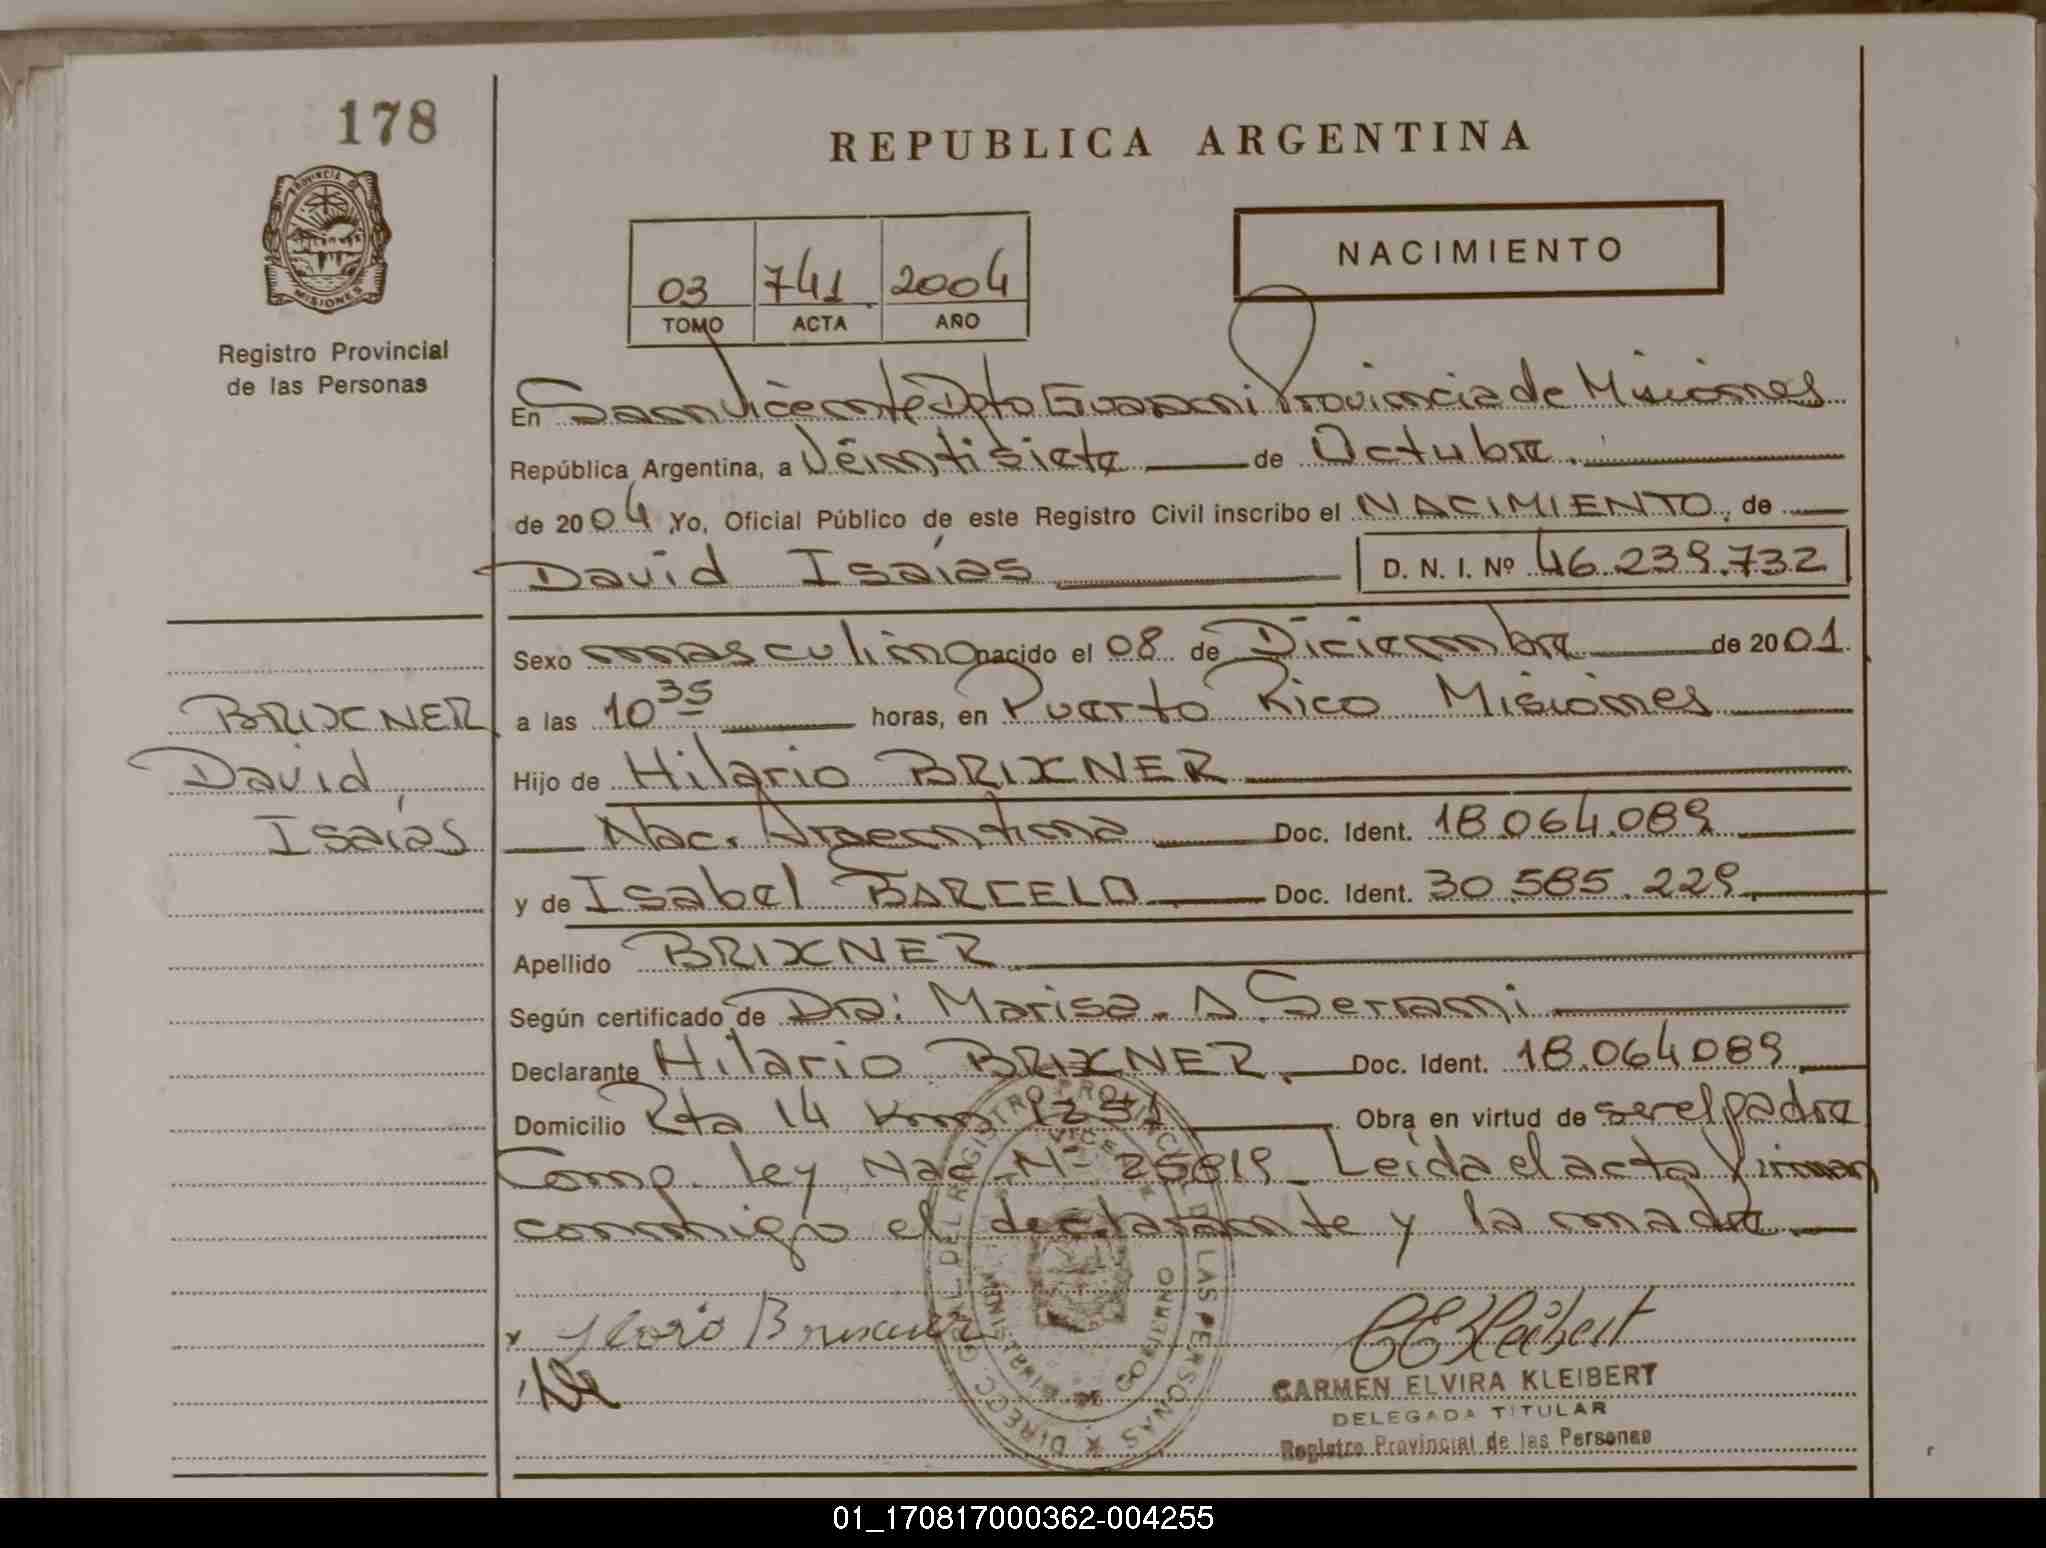 178
REPUBLICA ARGENTINA
PROVINCIA DE
MISIONES
Registro Provincial
de las Personas
03 741 2004
TOMO ACTA AÑO
NACIMIENTO
En San Vicente Dpto Guarani Provincia de Misiones
República Argentina, a Veintisiete de Octubre.
de 2004 Yo, Oficial Público de este Registro Civil inscribo el NACIMIENTO, de
David Isaías D. N. I. Nº 46.239.732
Sexo masculino nacido el 08 de Diciembre de 2001
BRIXNER a las 10 35 horas, en Puerto Rico Misiones
David Hijo de Hilario BRIXNER
Isaías Nac. Argentina Doc. Ident. 18.064.089
y de Isabel BARCELO Doc. Ident. 30.585.229
Apellido BRIXNER
Según certificado de Dra: Marisa. A. Serrani
Declarante Hilario BRIXNER. Doc. Ident. 18.064089
Domicilio Rta 14 Km Obra en virtud de ser el padre
Comp. ley Nac. Nº 25819 Leída el acta firman
conmigo el declarante y la madre.
CARMEN ELVIRA KLEIBERT
DELEGADA TITULAR
Registro Provincial de las Personas
01_170817000362-004255